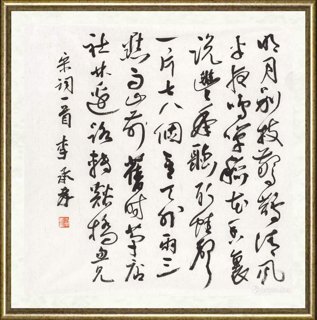 明月别枝惊鹊清风
半夜鸣蝉稻花香里
说丰年听取蛙声
一片七八個星天外两三
點雨山前舊时茅店
社林边路转谿橋忽见
宋词一首 李承孝